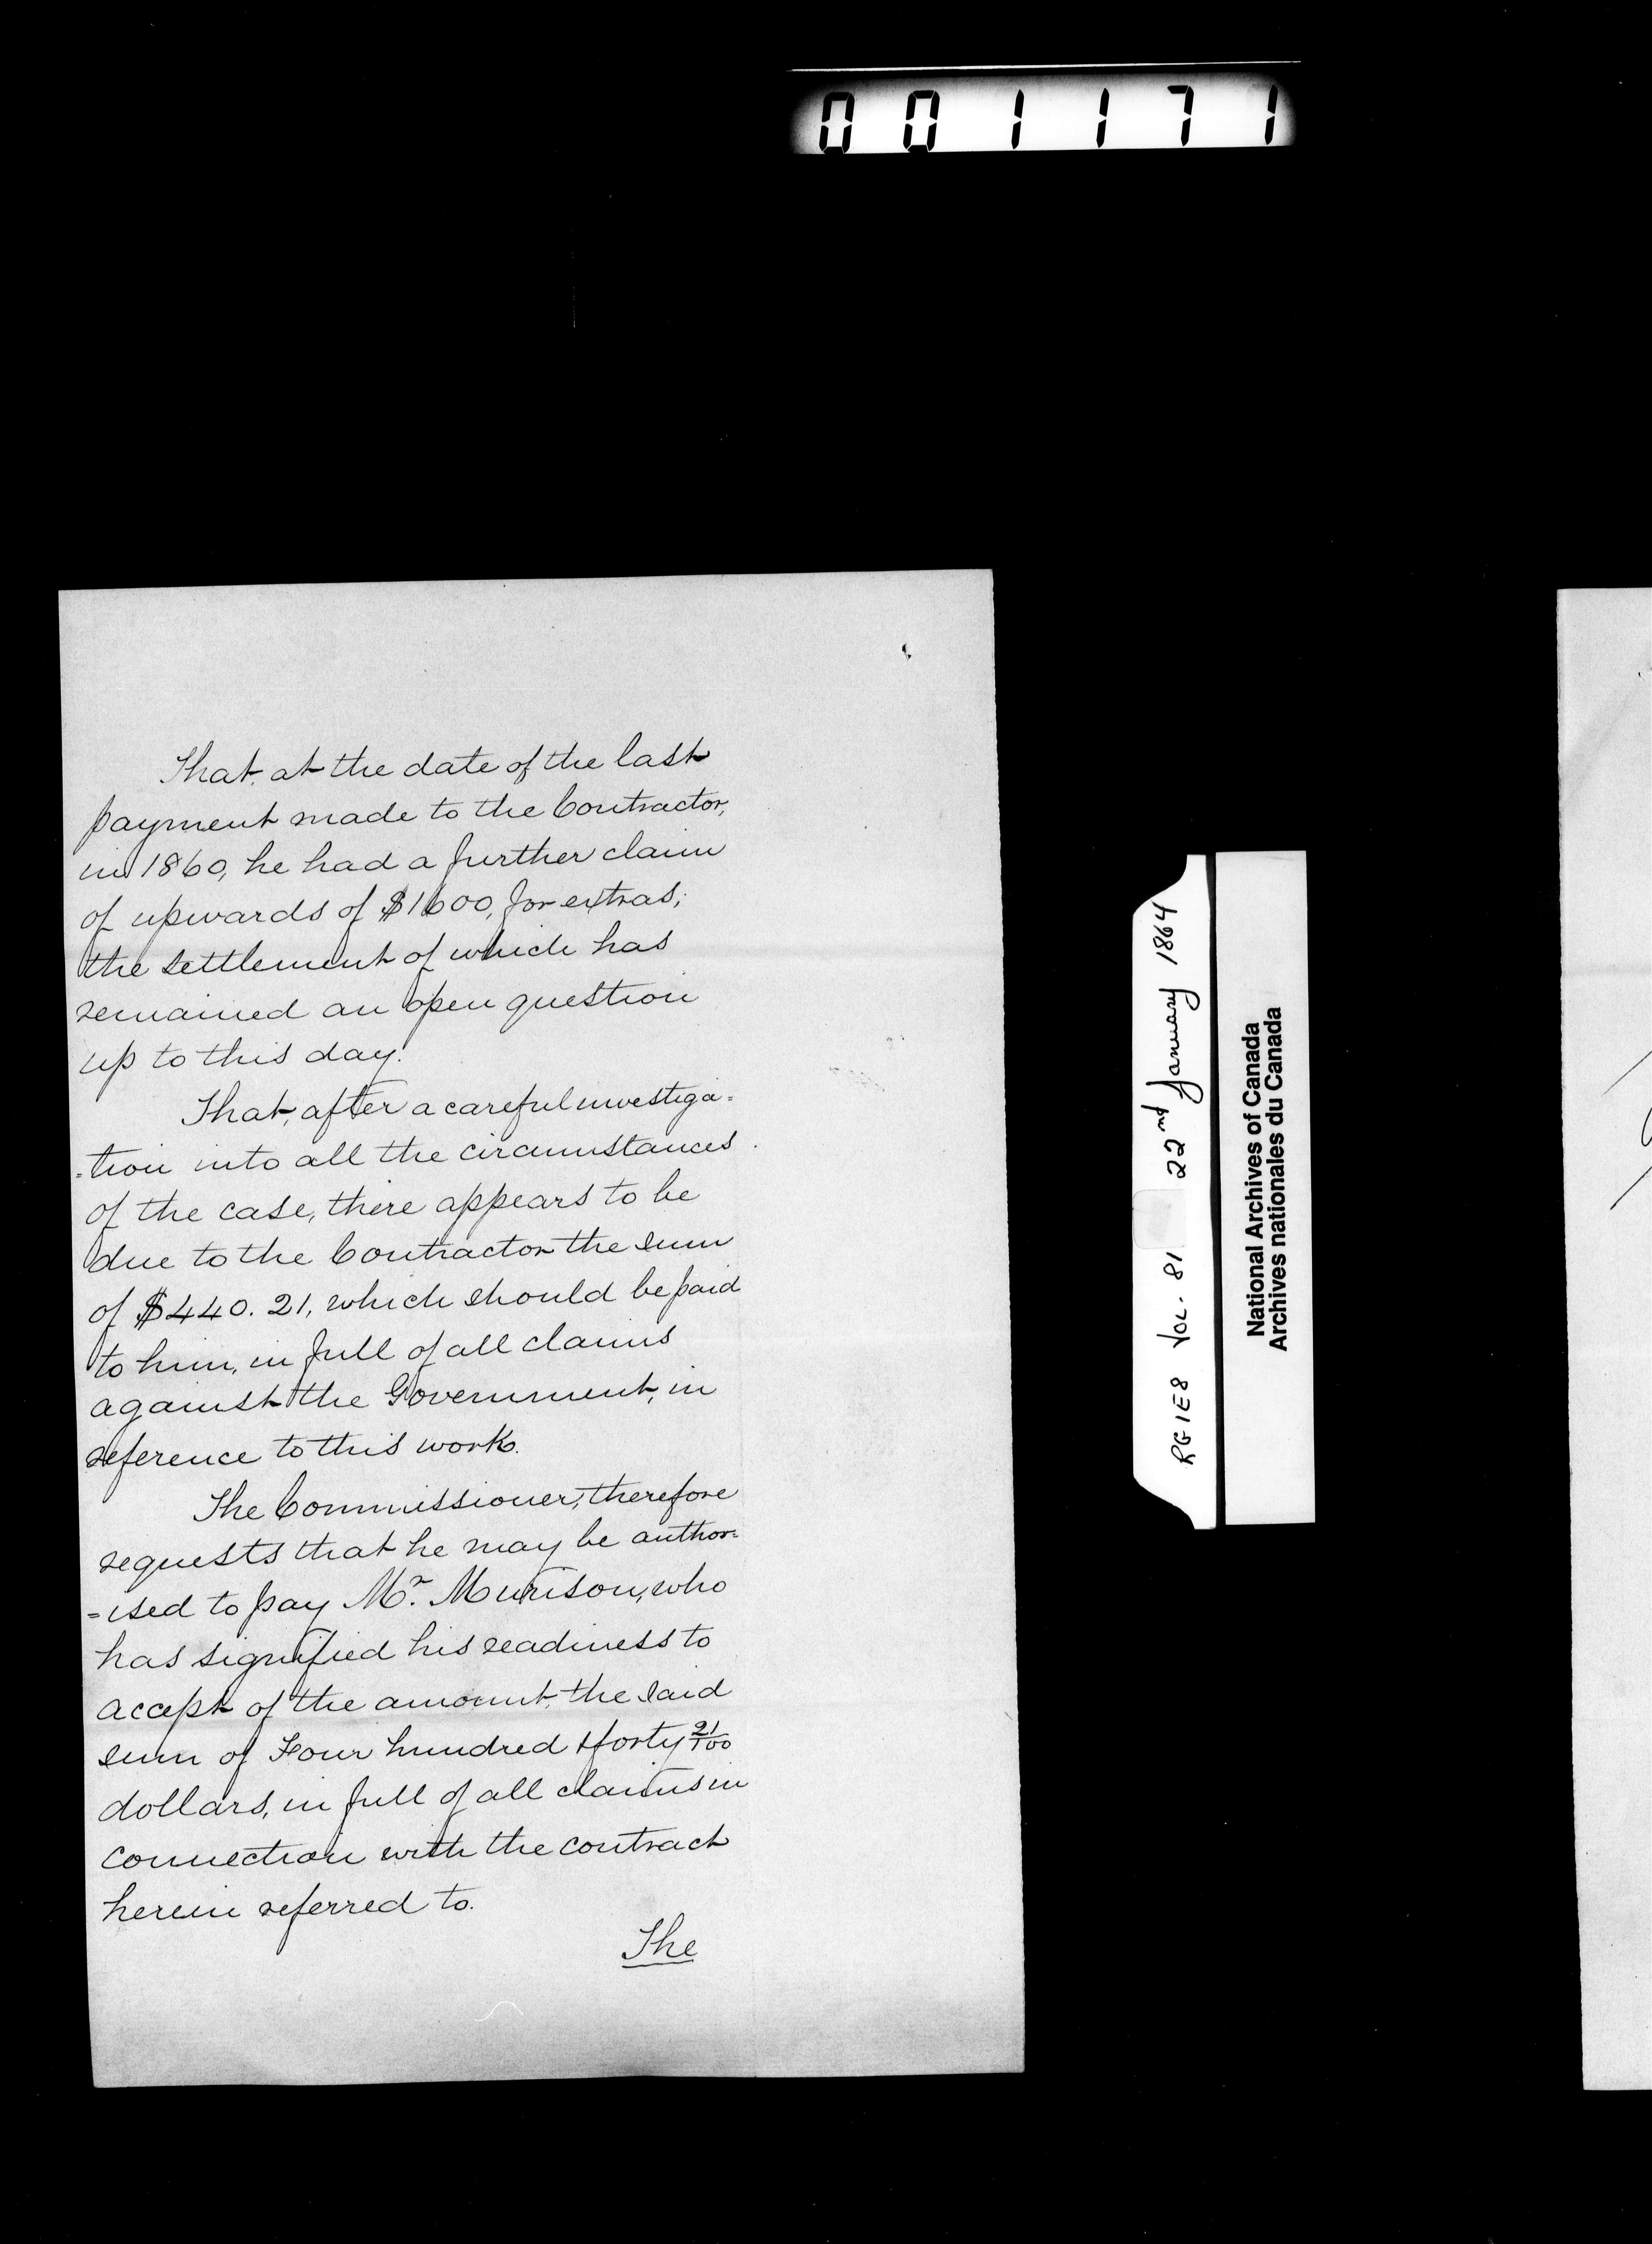 001171
That, at the date of the last
payment made to the Contractor,
in 1860, he had a further claim
of upwards of $1600, for extras;
the settlement of which has
remained an open question
up to this day.
That, after a careful investiga=
=tion into all the circumstances
of the case, there appears to be
due to the Contractor the sum
of $440.21, which should be paid
to him, in full of all claims
against the Government, in
reference to this work.
The Commissioner, therefore
requests that he may be author=
=ised to pay Mr. Murison, who
has signified his readiness to
accept of the amount, the said
sum of Four hundred & forty 21/100
dollars, in full of all claims in
connection with the contract
herein referred to.
The
RG1E8 Vol. 81 22nd January 1864
National Archives of Canada
Archives nationales du Canada